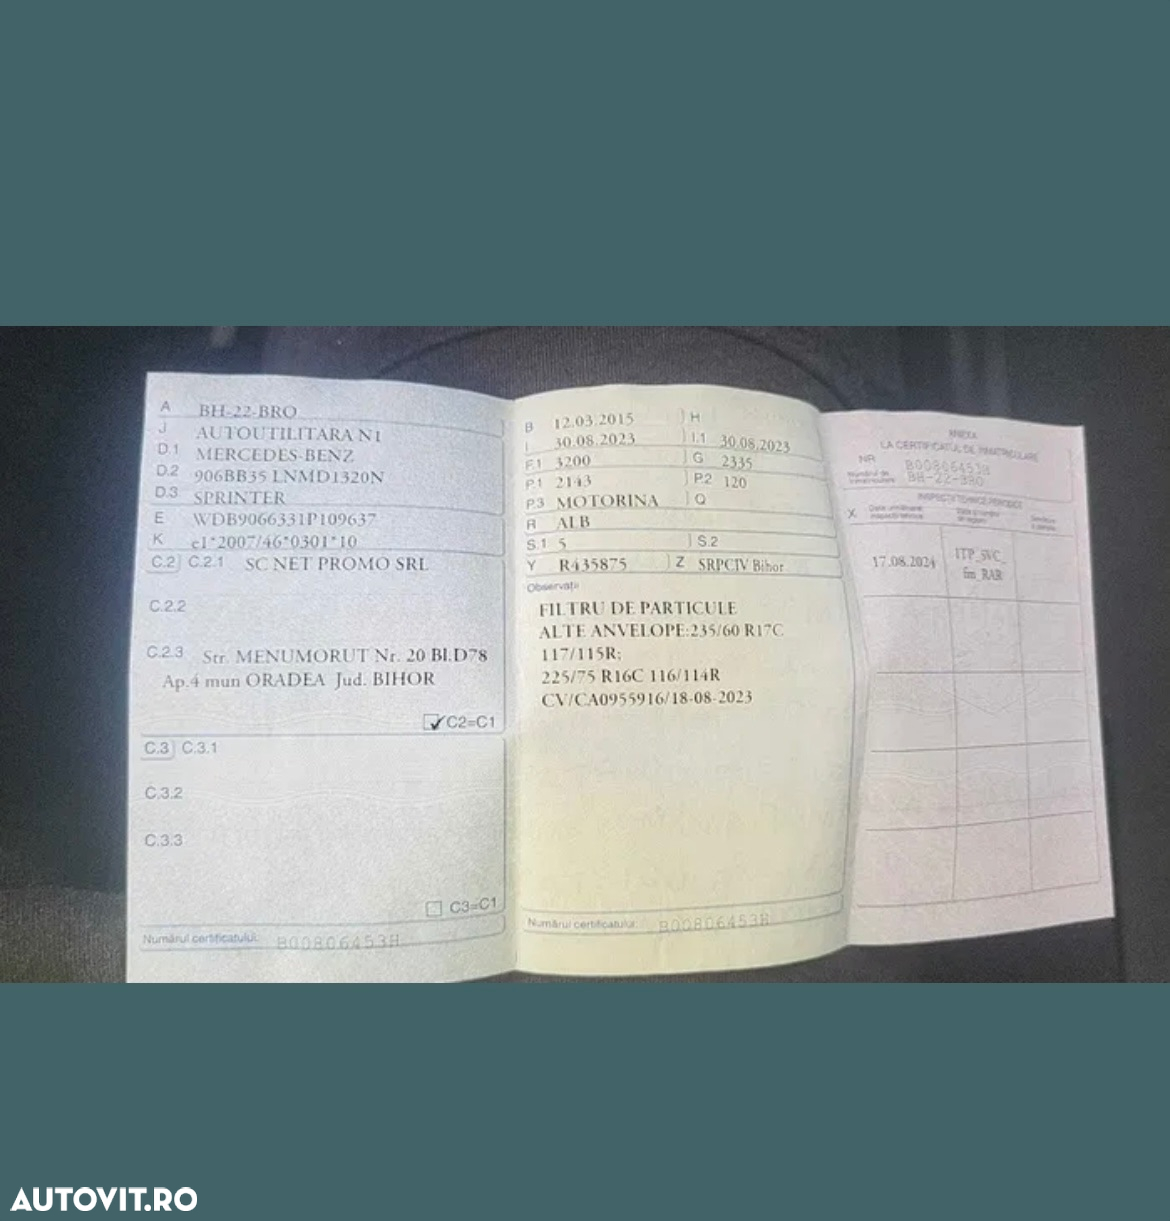 A BH-22-BRO
J AUTOUTILITARA N1
D.1 MERCEDES-BENZ
D.2 906BB35 LNMD1320N
D.3 SPRINTER
E WDB9066331P109637
K e1*2007/46*0301*10
C.2 C.2.1 SC NET PROMO SRL
C.2.2
C.2.3 Str. MENUMORUT Nr. 20 Bl.D78
Ap.4 mun ORADEA Jud. BIHOR
C2=C1
C.3 C.3.1
C.3.2
C.3.3
C3=C1
Numărul certificatului: B00806453H
B 12.03.2015 H
I 30.08.2023 I.1 30.08.2023
F.1 3200 G 2335
P.1 2143 P.2 120
P.3 MOTORINA Q
R ALB
S.1 5 S.2
Y R435875 Z SRPCIV Bihor
Observații
FILTRU DE PARTICULE
ALTE ANVELOPE:235/60 R17C
117/115R;
225/75 R16C 116/114R
CV/CA0955916/18-08-2023
Numărul certificatului: B00806453H
ANEXA
LA CERTIFICATUL DE ÎNMATRICULARE
NR B00806453H
Numărul de
înmatriculare BH-22-BRO
INSPECȚII TEHNICE PERIODICE
X
17.08.2024 ITP_SVC_
fm_RAR
AUTOVIT.RO